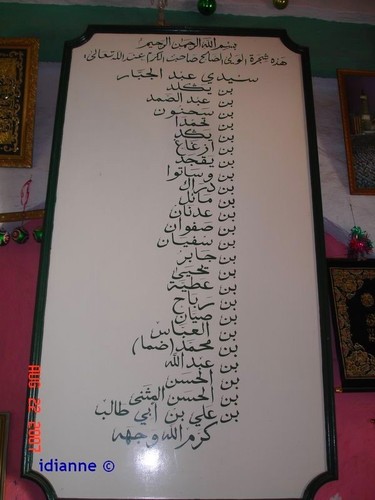 بسم الله الرحمن الرحيم
هذه شجرة الولي الصالح صاحب الكرم عند الله تعالى:
سيدي عبد الجبار
بن يكلد
بن عبد الصمد
بن سحنون
بن محمدا
بن يكد
بن ازعاغ
بن يفجد
بن وساتوا
بن دراك
بن مائل
بن عدنان
بن صفوان
بن سفيان
بن جابر
بن يحيى
بن عطية
بن رباح
بن صيان
بن العباس
بن محمد (ضما)
بن عبد الله
بن الحسن
بن الحسن المثنى
بن علي بن أبي طالب
كرم الله وجهه
AUG 22 2007
idianne ©